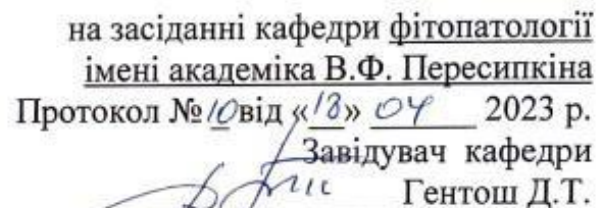 на засіданні кафедри фітопатології
імені академіка В.Ф. Пересипкіна
Протокол №10від «18» 04 2023 р.
Завідувач кафедри
Гентош Д.Т.